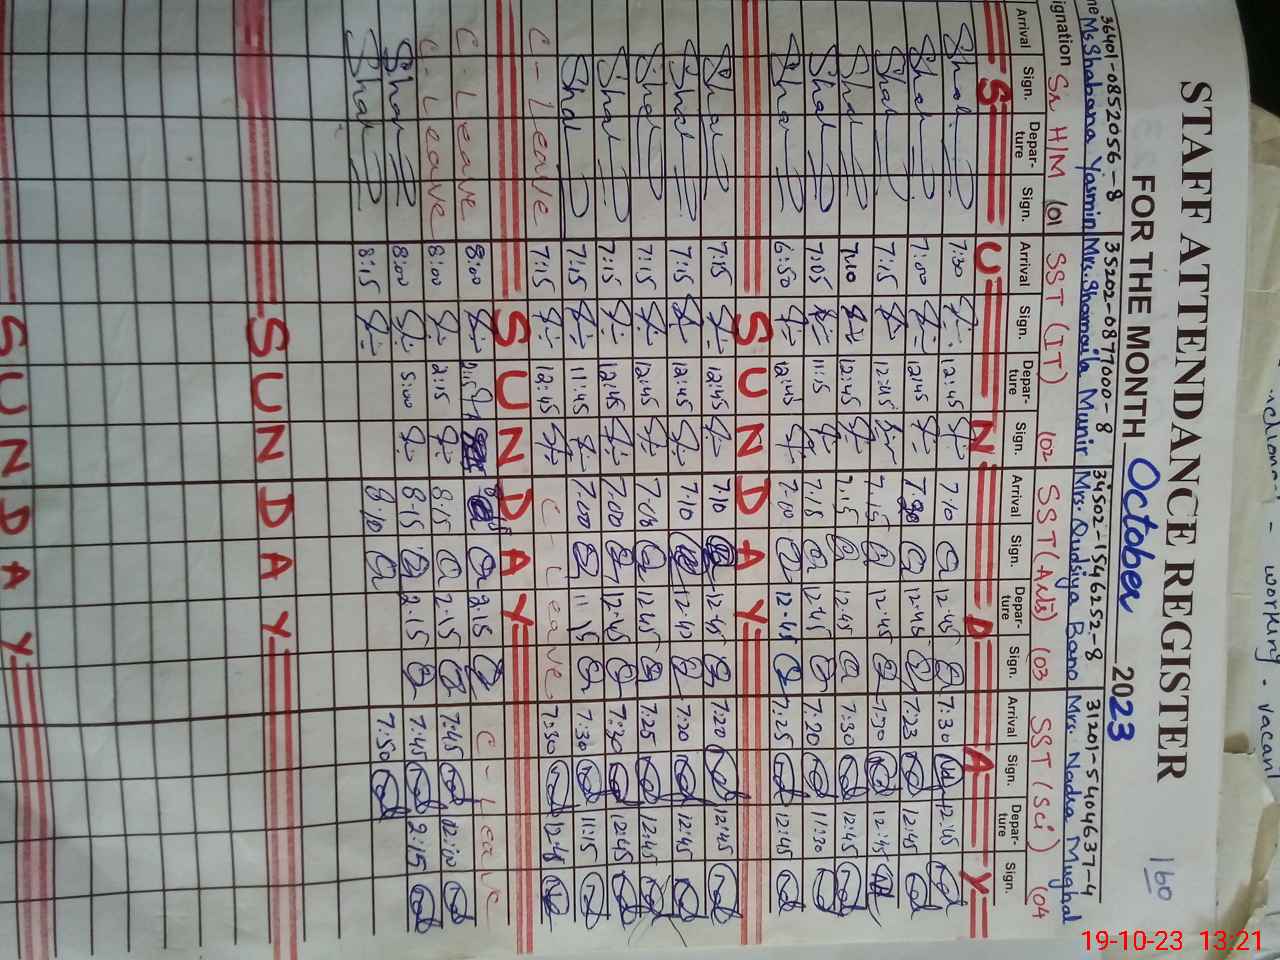 160
STAFF ATTENDANCE REGISTER
FOR THE MONTH October 2023
36401-0852056-8 35202-0877000-8 34502-1546252-8 31201-5404637-4
me Ms. Shabana Yasmin Mrs. Shamaila Munir Mrs. Qudsiya Bano Mrs. Nadra Mughal
signation Sr H/M (01 SST (IT) (02 SST (Arts) (03 SST (Sci) (04
Arrival Sign. Depar-ture Sign. Arrival Sign. Depar-ture Sign. Arrival Sign. Depar-ture Sign. Arrival Sign. Depar-ture Sign.
S U N D A Y
7:30 12:45 7:10 12:45 7:30 12:45
7:00 12:45 12:45 7:23 12:45
7:15 12:45 7.15 12:45 12:45
7:10 12:45 7.15 12:45 7:30 12:45
7:05 11:15 7:15 12:45 7:20 11:30
6:50 12:45 7:00 12:45 7:25 12:45
S U N D A Y
7:15 12:45 7:10 12:45 7:20 12:45
7:15 12:45 7:10 12:40 7:20 12:45
7:15 12:45 12:45 7:25 12:45
7:15 12:45 7:00 12:45 7:30 12:45
7:15 11:45 7:00 11:15 7:30 11:15
C-Leave 7:15 12:45 C-Leave 7:30 12:45
S U N D A Y
C-Leave 8:00 2:15 2:15 C-Leave
C-Leave 8:00 2:15 8:15 2:15 7:45
8:00 5:00 8:15 2:15 7:45 2:15
8:15 8:10 7:50
S U N D A Y
S U N D A Y
working - vacant
19-10-23 13:21